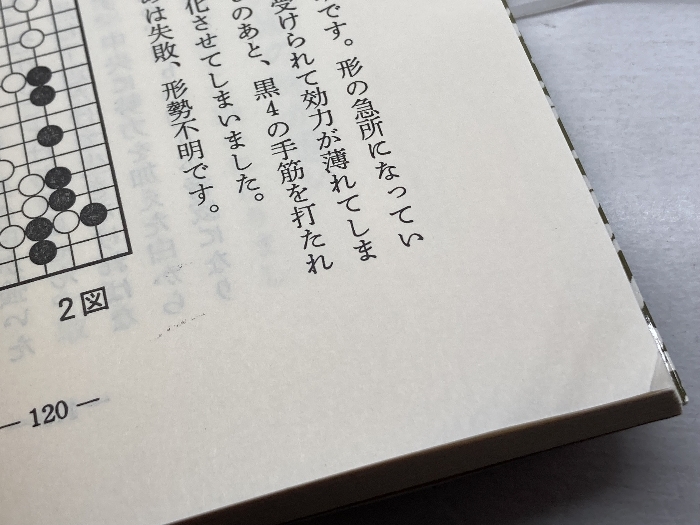 です。形の急所になってい
受けられて効力が薄れてしま
のあと、黒4の手筋を打たれ
化させてしまいました。
は失敗、形勢不明です。
2図
— 120 —